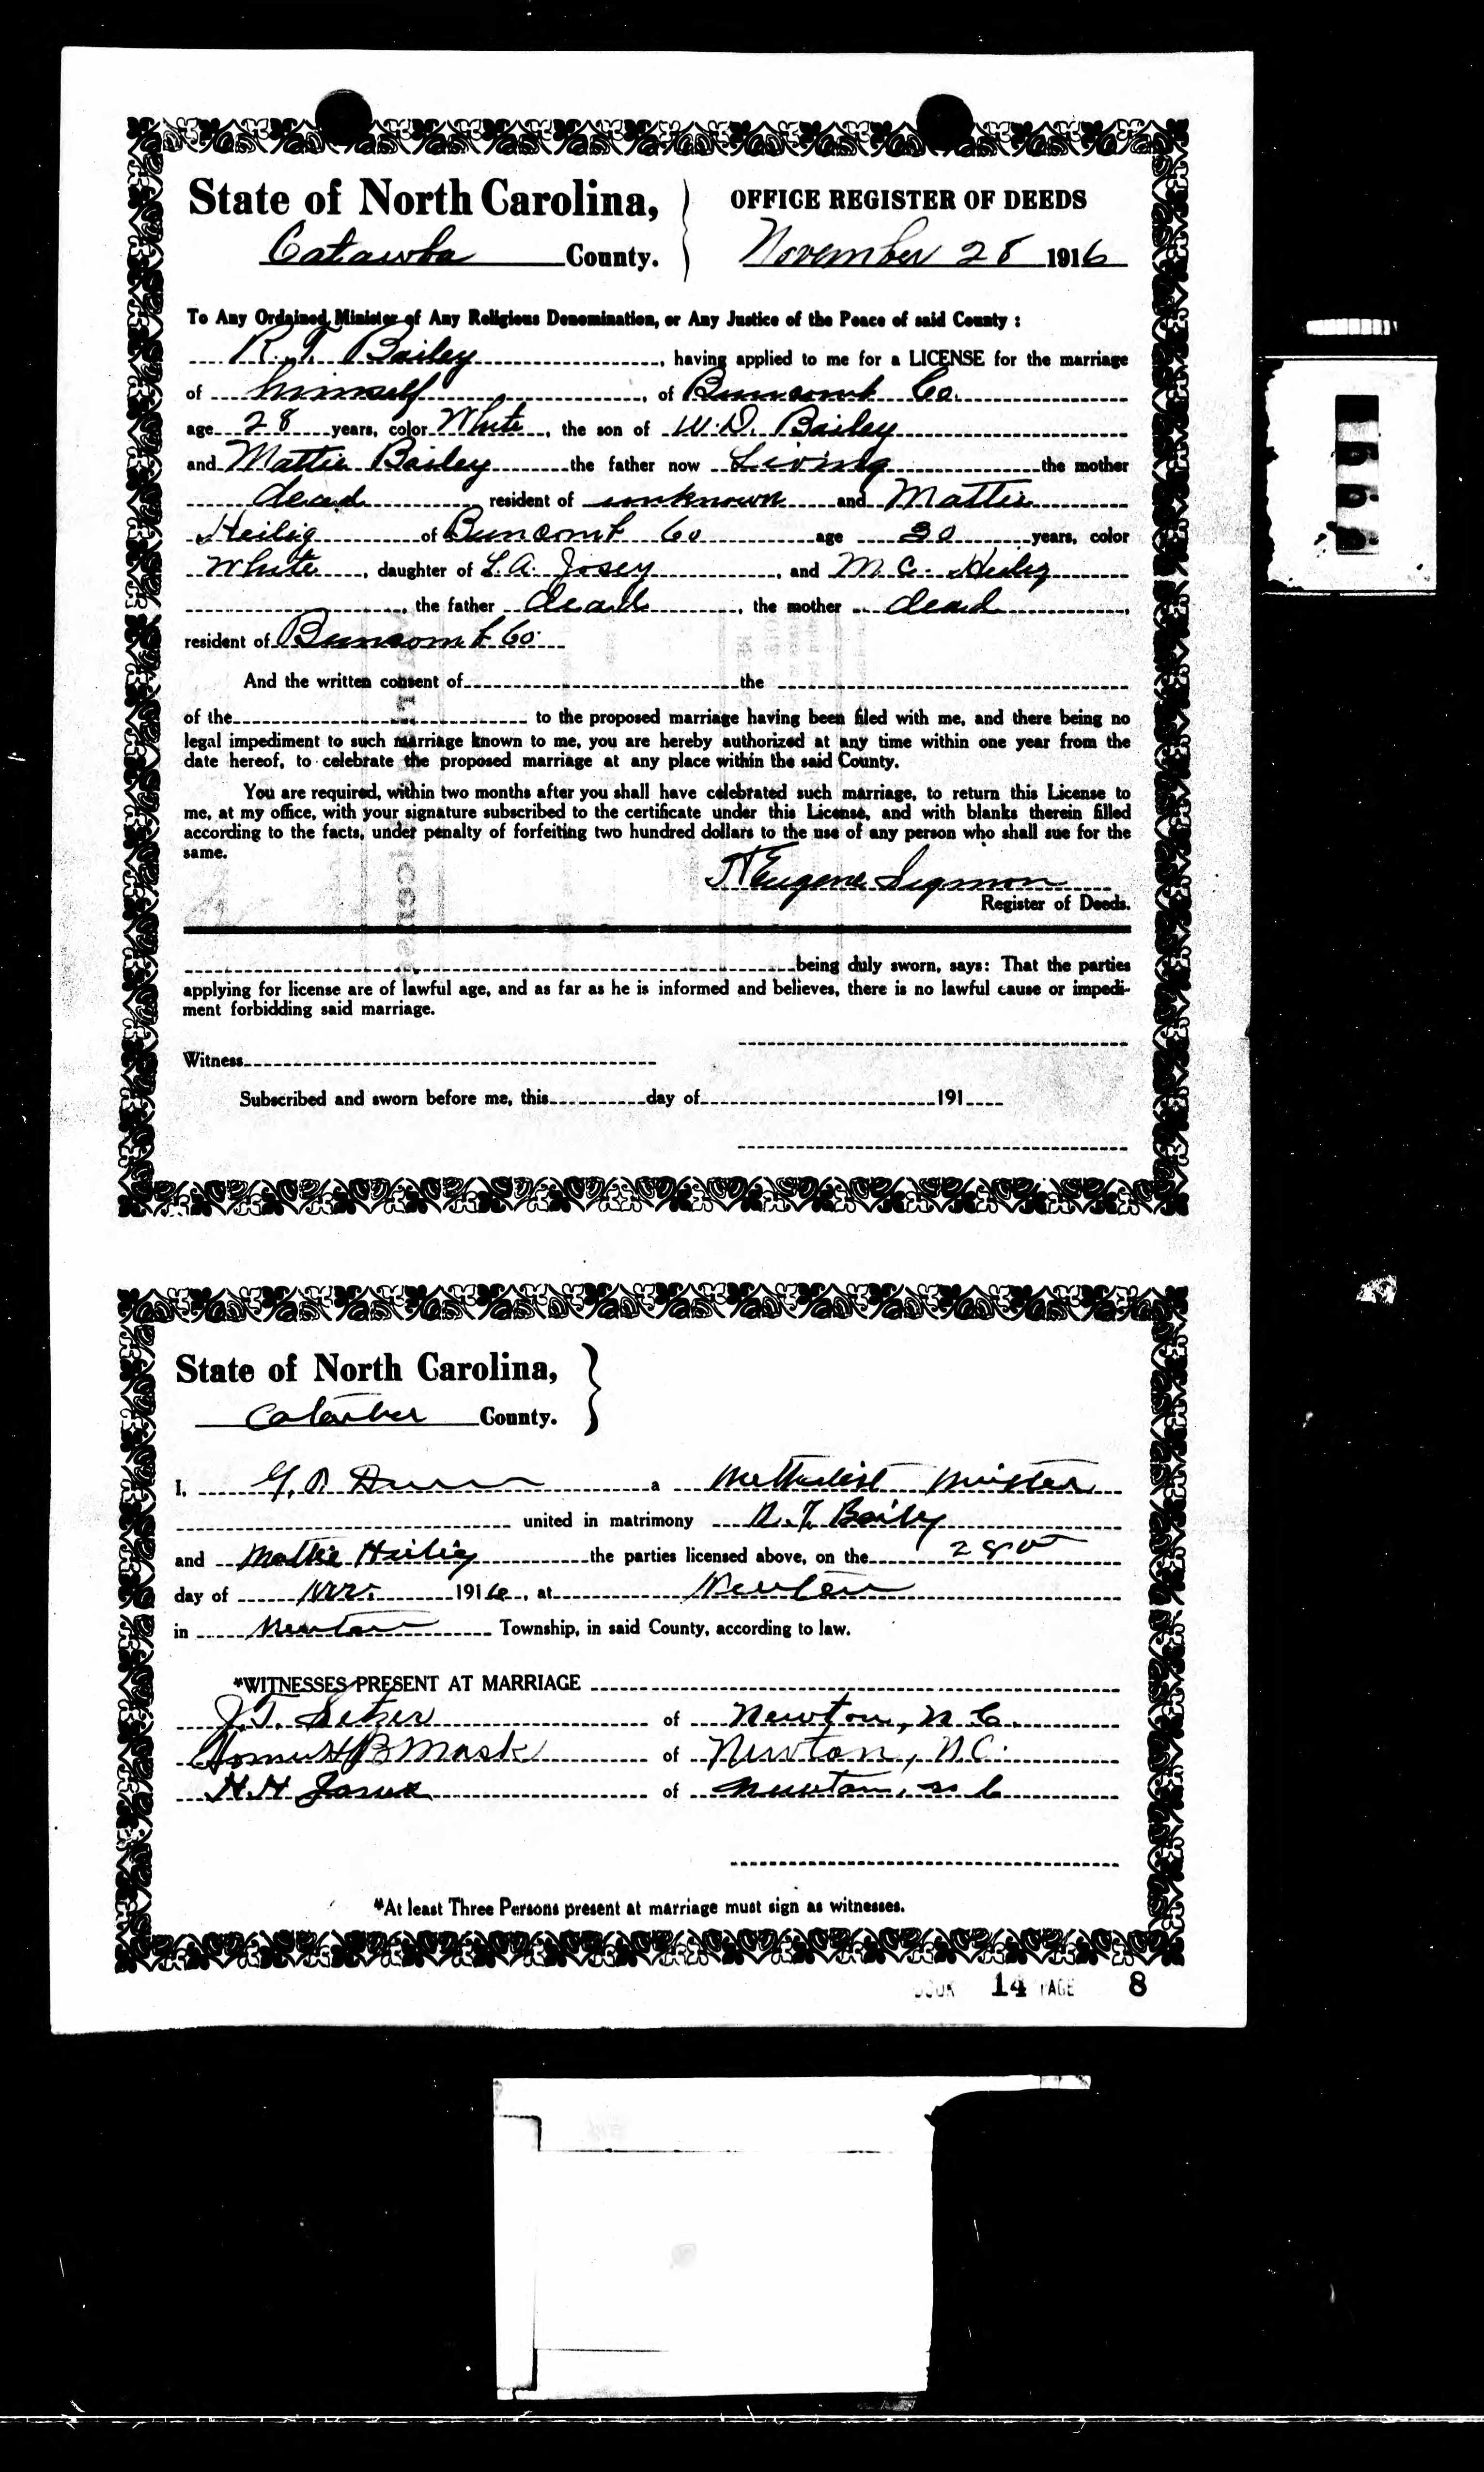 State of North Carolina,
Catawba County.
OFFICE REGISTER OF DEEDS
November 28 1916
To Any Ordained Minister of Any Religious Denomination, or Any Justice of the Peace of said County :
Bailey, having applied to me for a LICENSE for the marriage
of himself, of Buncomb Co.
age 28 years, color White, the son of W. D. Bailey
and Mattie Bailey the father now Living the mother
dead resident of unknown and Mattie
Heilig of Buncomb Co age 30 years, color
White, daughter of L. A. Josey, and M. C. Heilig
, the father dead, the mother dead,
resident of Buncomb Co.
And the written consent of the
of the to the proposed marriage having been filed with me, and there being no
legal impediment to such marriage known to me, you are hereby authorized at any time within one year from the
date hereof, to celebrate the proposed marriage at any place within the said County.
You are required, within two months after you shall have celebrated such marriage, to return this License to
me, at my office, with your signature subscribed to the certificate under this License, and with blanks therein filled
according to the facts, under penalty of forfeiting two hundred dollars to the use of any person who shall sue for the
same.
Eugene Sigmon
Register of Deeds.
being duly sworn, says: That the parties
applying for license are of lawful age, and as far as he is informed and believes, there is no lawful cause or impedi-
ment forbidding said marriage.
Witness
Subscribed and sworn before me, this day of 191
State of North Carolina,
County.
I, a Methodist Minister
united in matrimony Baily
and Mattie Heilig the parties licensed above, on the
day of Nov. 1916, at Newton
in Newton Township, in said County, according to law.
*WITNESSES PRESENT AT MARRIAGE
J. T. Setzer of Newton, N. C.
B Mask of Newton, N.C.
H. H of Newton, N C
*At least Three Persons present at marriage must sign as witnesses.
BOOK 14 PAGE 8